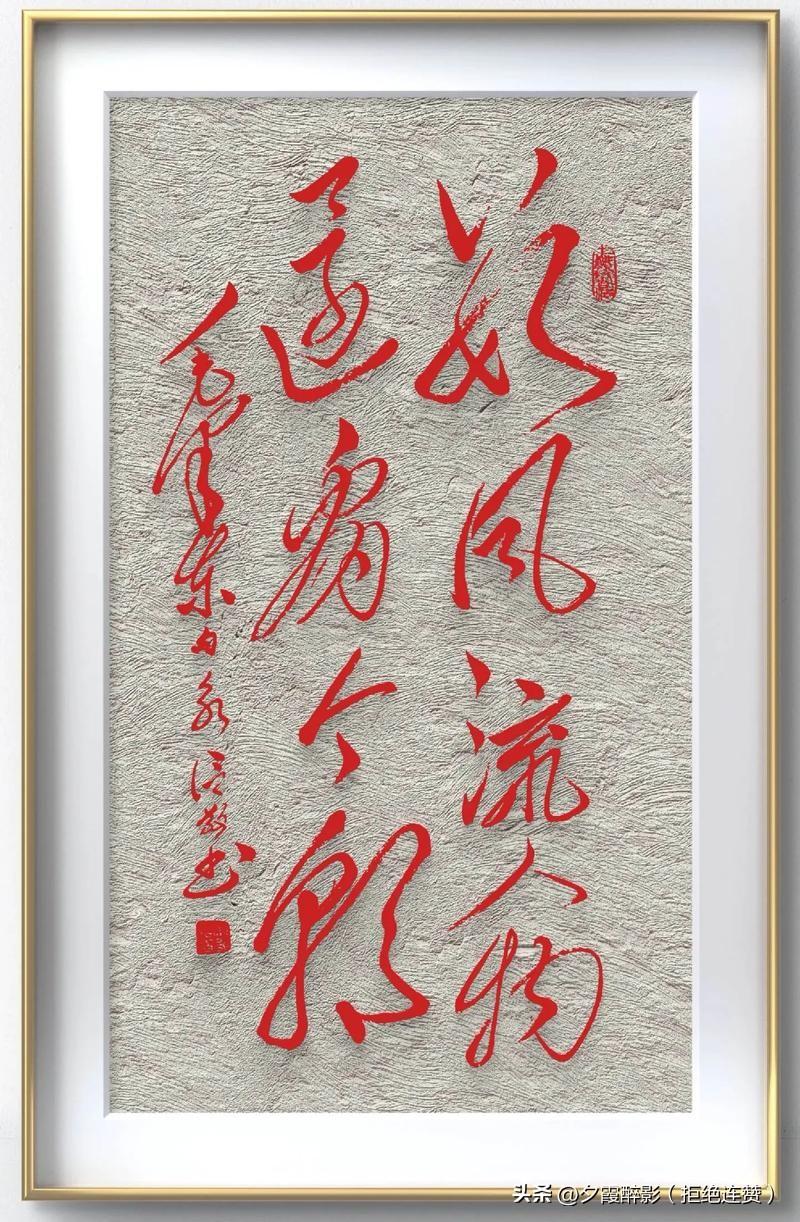 数风流人物
还看今朝
毛泽东句 敬书
头条 @夕霞醉影（拒绝连赞）